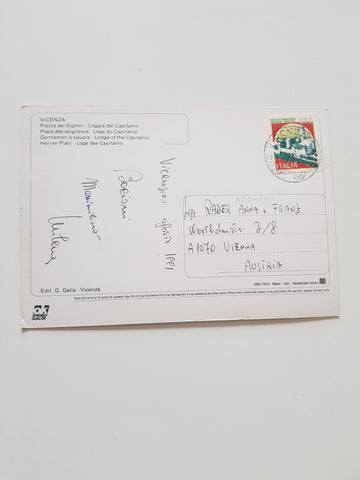 VICENZA
Piazza dei Signori - Loggia del Capitanio
Place des seigneurs - Loge du Capitanio
Gentlemen's square - Lodge of the Capitanio
Herren Platz - Loge des Capitanio
Vicenza, agosto 1991
Bacioni
Massimiliano
Milena
ITALIA
ADDRESS
RADER ANNA e FRANZ
3/8
A1070 VIENNA
AUSTRIA
Edit. G. Galla - Vicenza
ok